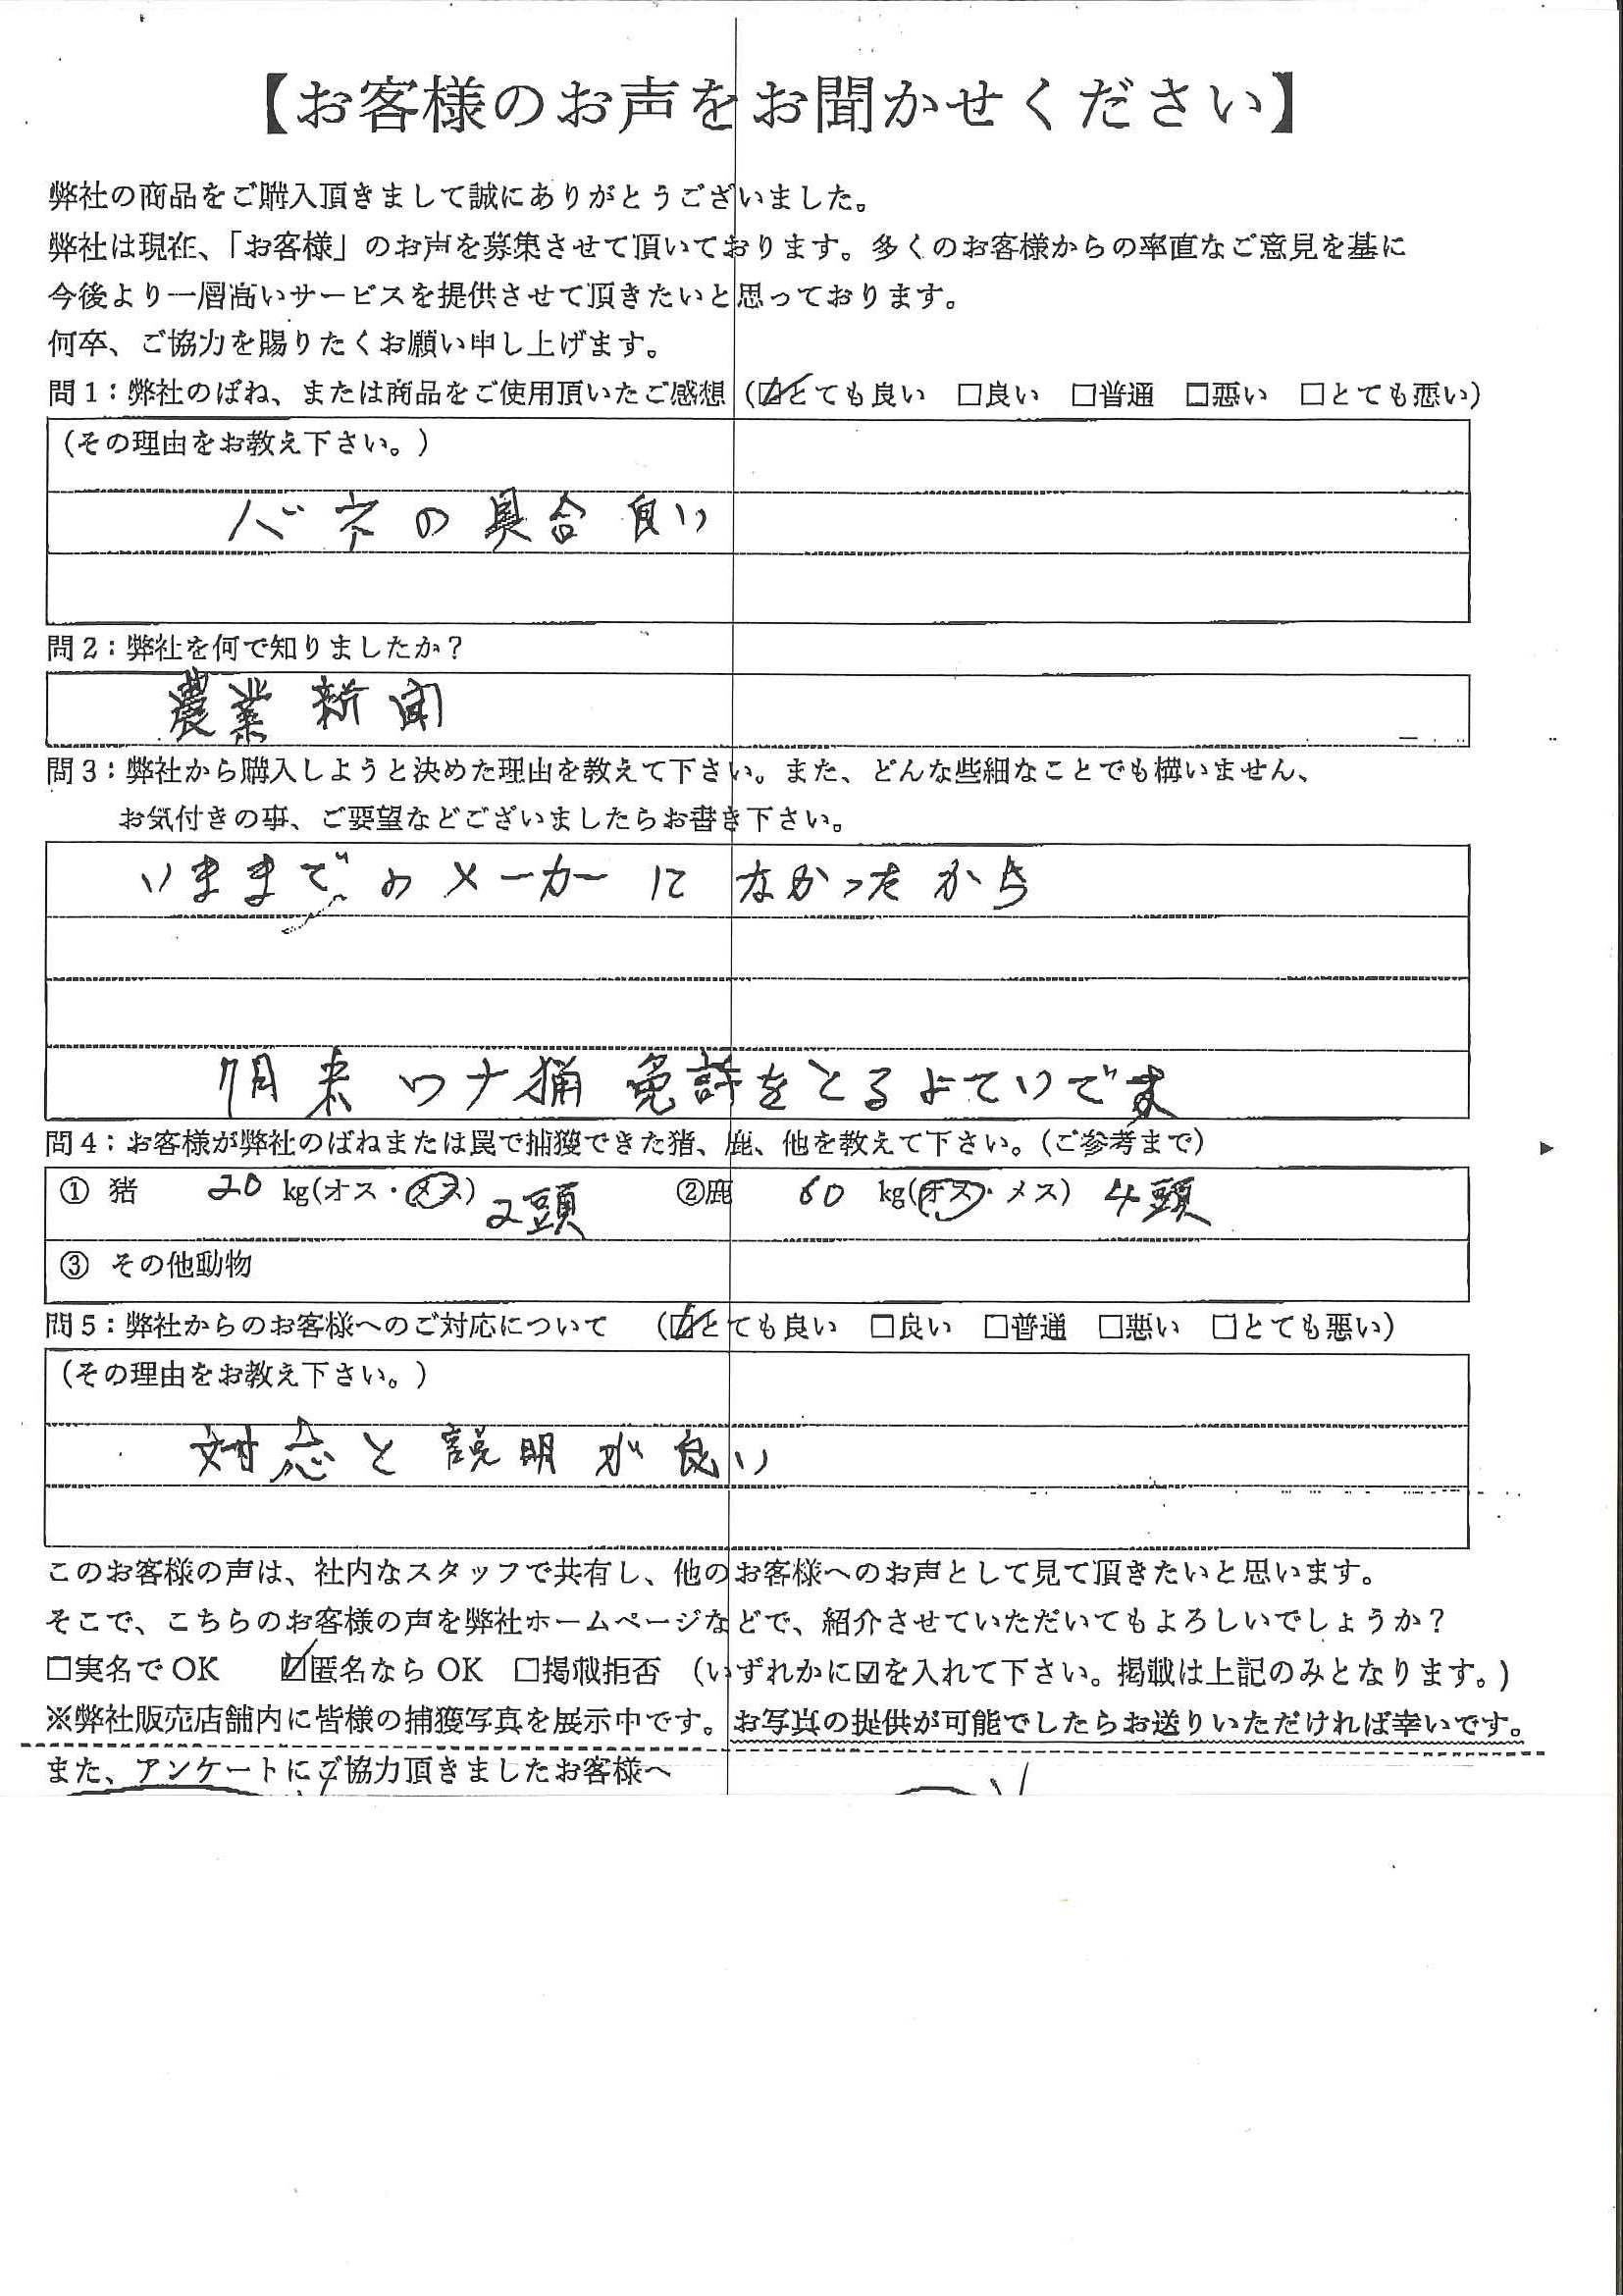 【お客様のお声をお聞かせください】
弊社の商品をご購入頂きまして誠にありがとうございました。
弊社は現在、「お客様」のお声を募集させて頂いております。多くのお客様からの率直なご意見を基に
今後より一層高いサービスを提供させて頂きたいと思っております。
何卒、ご協力を賜りたくお願い申し上げます。
問1:弊社のばね、または商品をご使用頂いたご感想(☑とても良い □良い □普通 □悪い □とても悪い)
(その理由をお教え下さい。)
バネの具合良い
問2:弊社を何で知りましたか?
農業新聞
問3:弊社から購入しようと決めた理由を教えて下さい。また、どんな些細なことでも構いません、
お気付きの事、ご要望などございましたらお書き下さい。
いままでのメーカーになかったから
7月末ワナ猟免許をとるよていです
問4:お客様が弊社のばねまたは罠で捕獲できた猪、鹿、他を教えて下さい。(ご参考まで)
① 猪 20 kg(オス・メス) 2頭 ②鹿 60 kg(オス・メス) 4頭
③ その他動物
問5:弊社からのお客様へのご対応について (☑とても良い □良い □普通 □悪い □とても悪い)
(その理由をお教え下さい。)
対応と説明が良い
このお客様の声は、社内なスタッフで共有し、他のお客様へのお声として見て頂きたいと思います。
そこで、こちらのお客様の声を弊社ホームページなどで、紹介させていただいてもよろしいでしょうか?
□実名でOK ☑匿名ならOK □掲載拒否 (いずれかに☑を入れて下さい。掲載は上記のみとなります。)
※弊社販売店舗内に皆様の捕獲写真を展示中です。お写真の提供が可能でしたらお送りいただければ幸いです。
また、アンケートにご協力頂きましたお客様へ